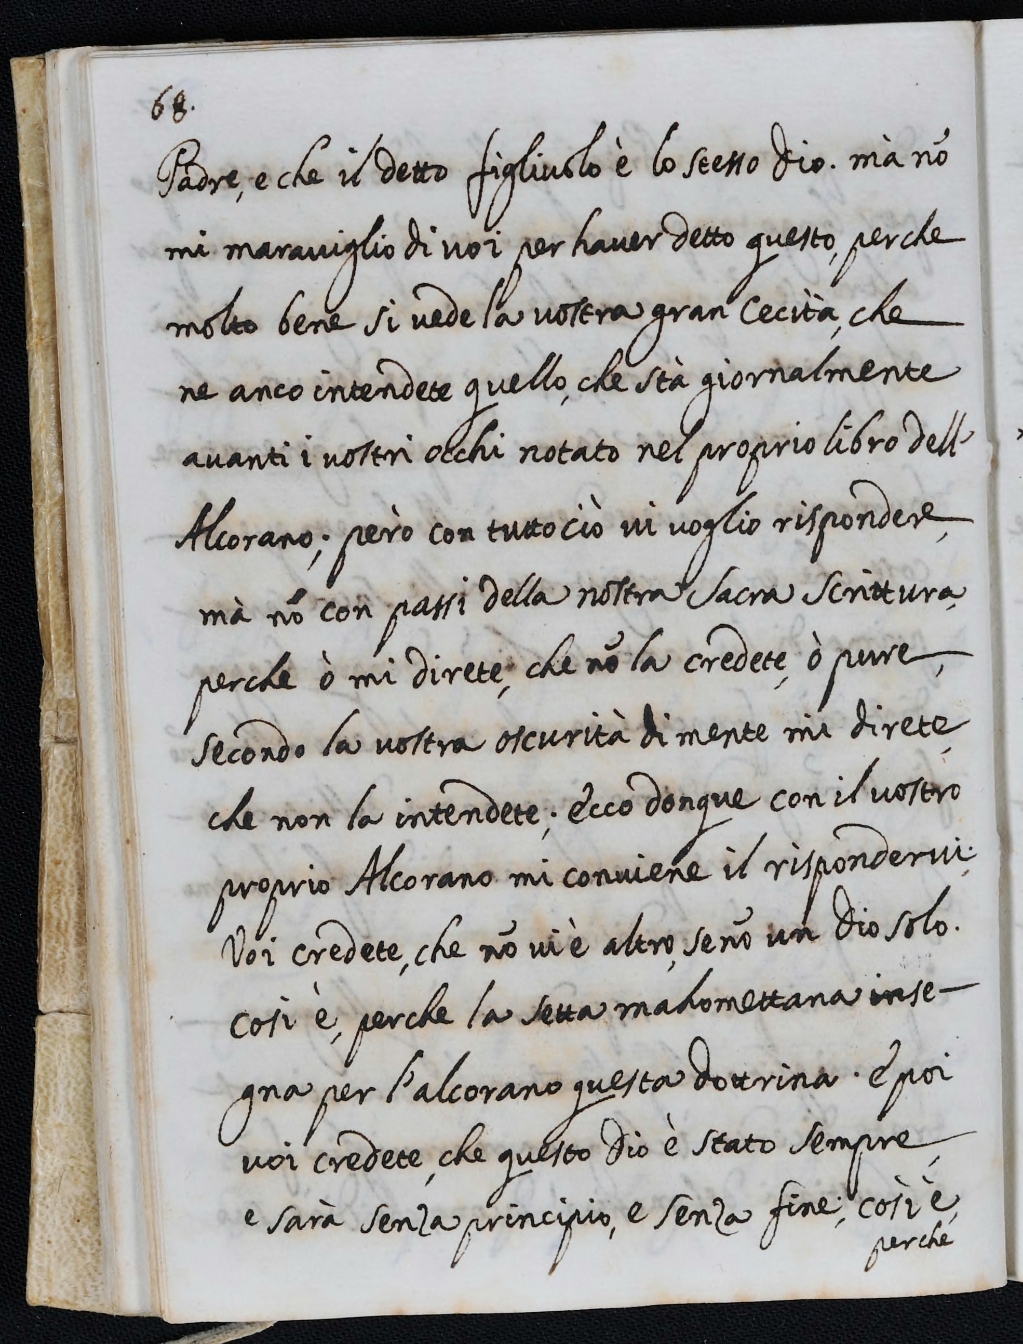 68.
Padre, e che il detto figliuolo è lo stesso Dio. mà nō
mi marauiglio di uoi per hauer detto questo, perche
molto bene si uede la uostra gran Cecità, che
ne anco intendete quello, che stà giornalmente
auanti i uostri occhi notato nel proprio libro dell'
Alcorano; però con tutto ciò ui uoglio rispondere,
mà nō con passi della nostra Sacra Scrittura,
perche ò mi direte, che nō la credete, ò pure,
secondo la uostra oscurità di mente mi direte,
che non la intendete; ecco donque con il uostro
proprio Alcorano mi conuiene il risponderui.
Voi credete, che nō ui è altro, se nō un Dio solo.
Cosi è, perche la setta mahomettana inse-
gna per l'alcorano questa dottrina. e poi
uoi credete, che questo Dio è stato sempre,
e sarà senza principio, e senza fine; così è,
perche